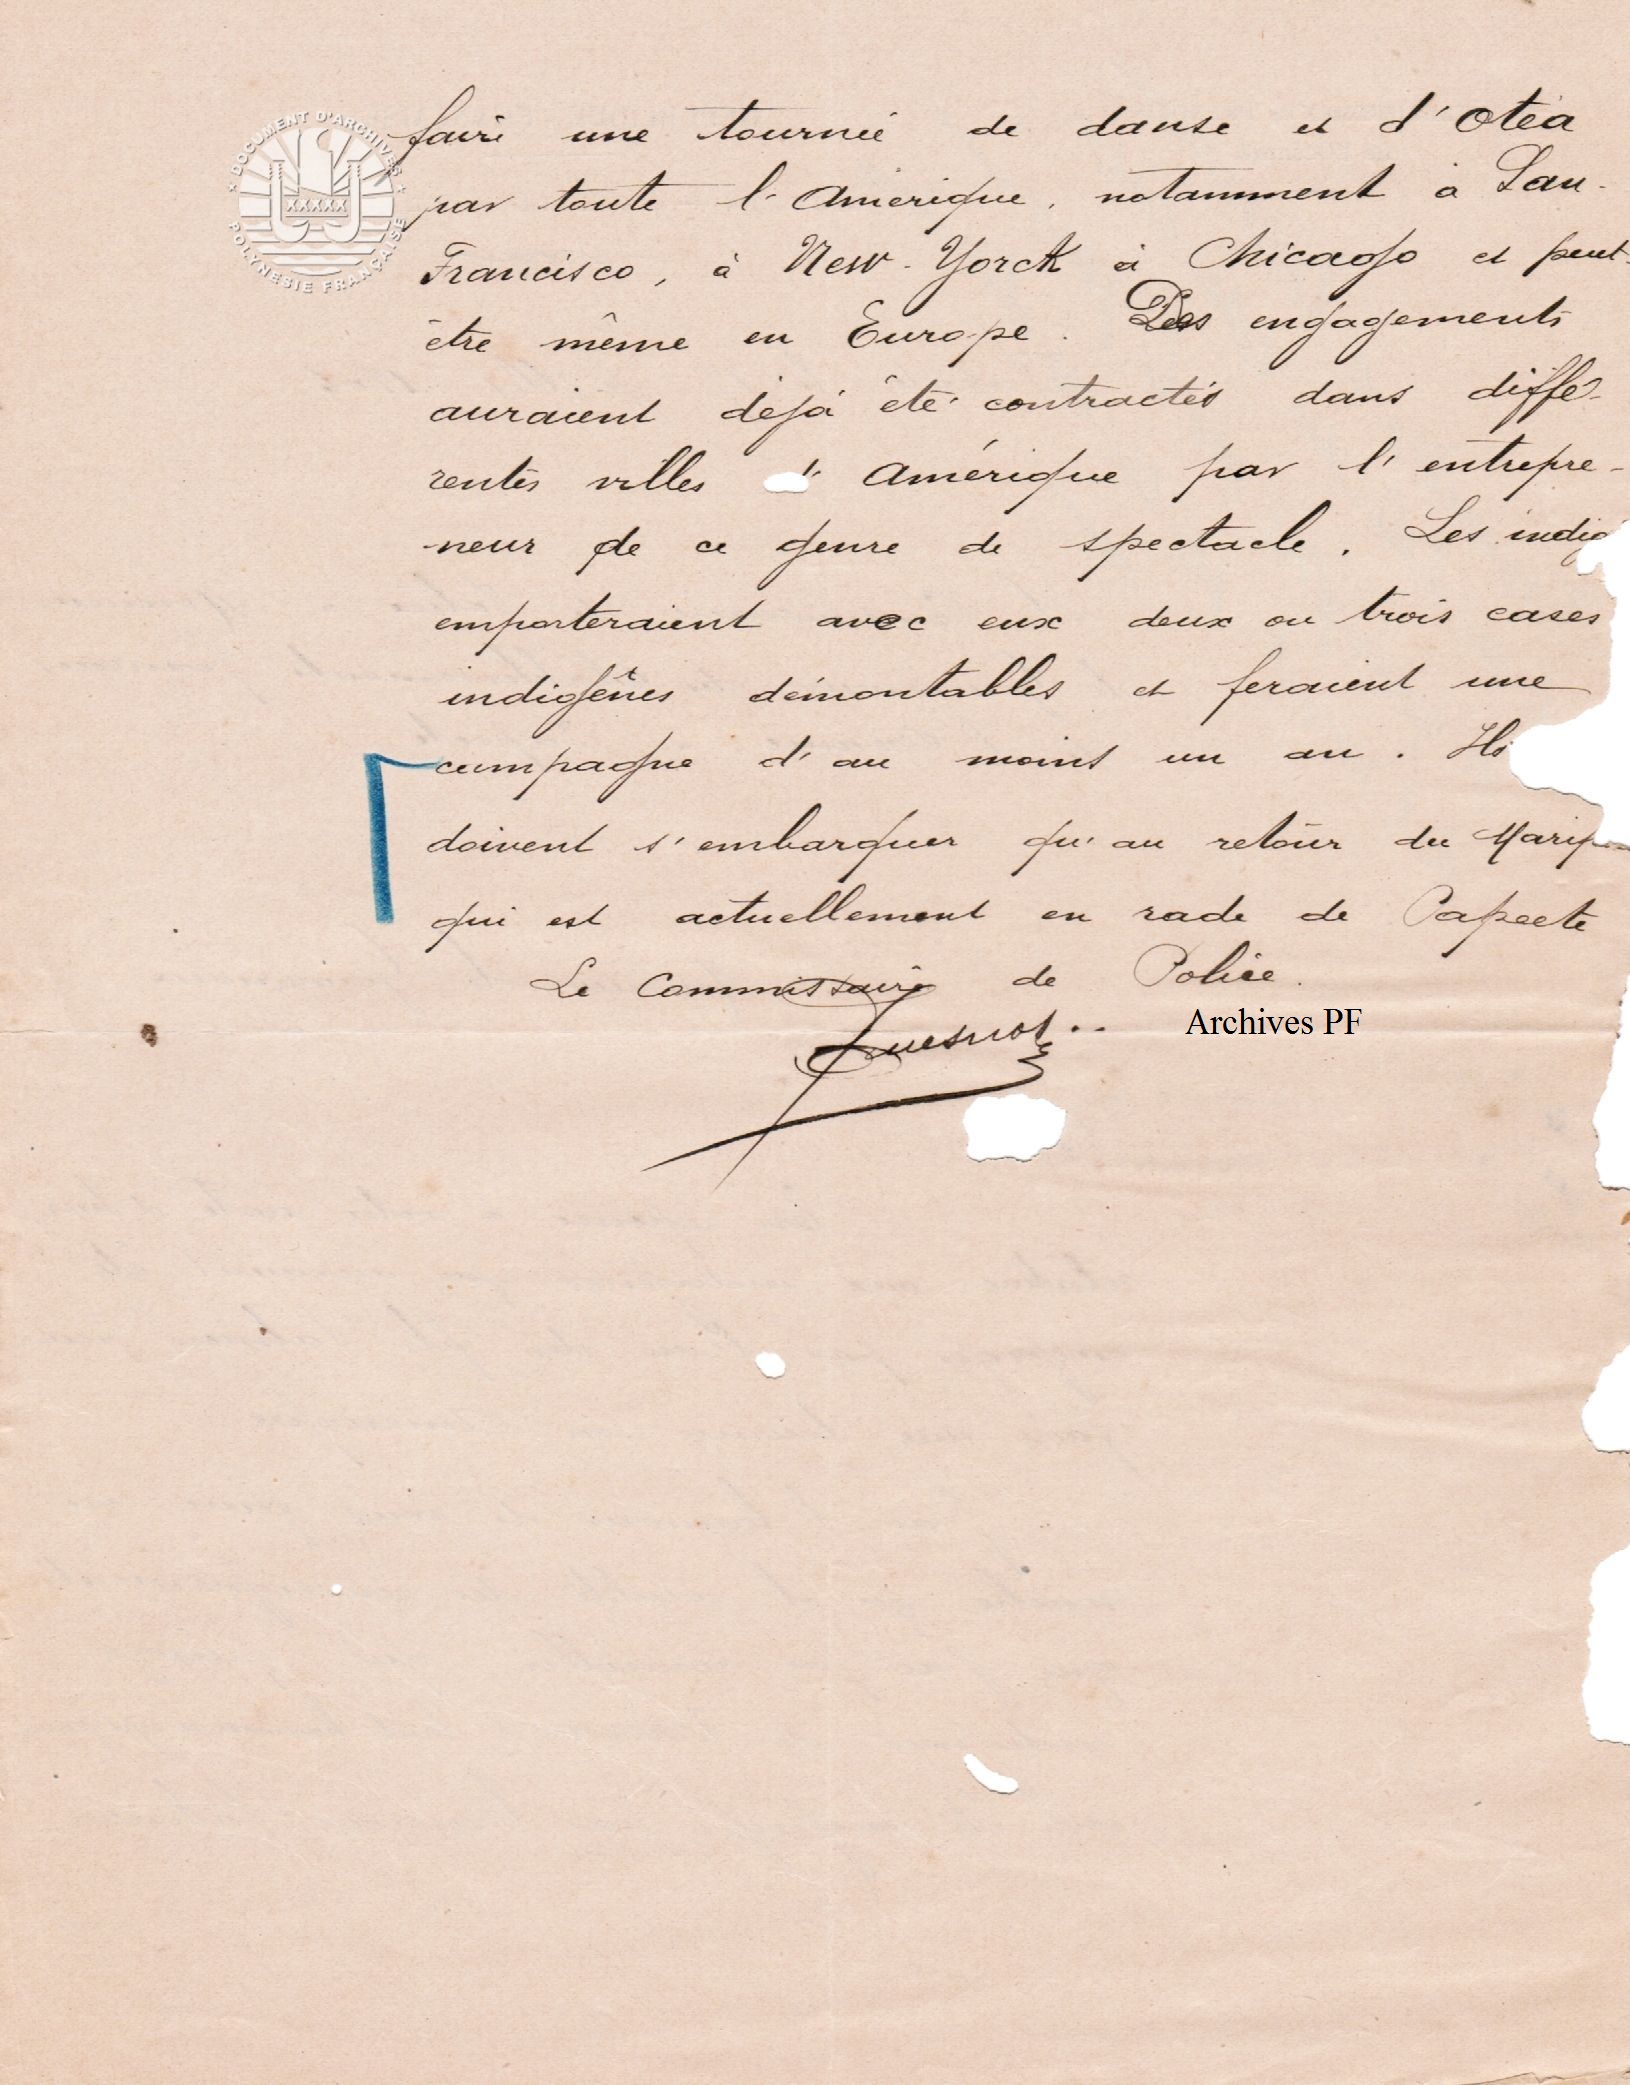 faire une tournée de danse et d'Otéa
par toute l'Amérique, notamment à San-
Francisco, à New-Yorck à Chicago et peut-
être même en Europe. Des engagements
auraient déjà été contractés dans diffé-
rentes villes d'Amérique par l'entrepre-
neur de ce genre de spectacle. Les indig
emporteraient avec eux deux ou trois cases
indigènes démontables et feraient une
campagne d'au moins un an. Ils
doivent s'embarquer qu'au retour du Marip
qui est actuellement en rade de Papeete
Le Commissaire de Police.
Quesnot
Archives PF
DOCUMENT D'ARCHIVES
XXXXX
POLYNÉSIE FRANÇAISE